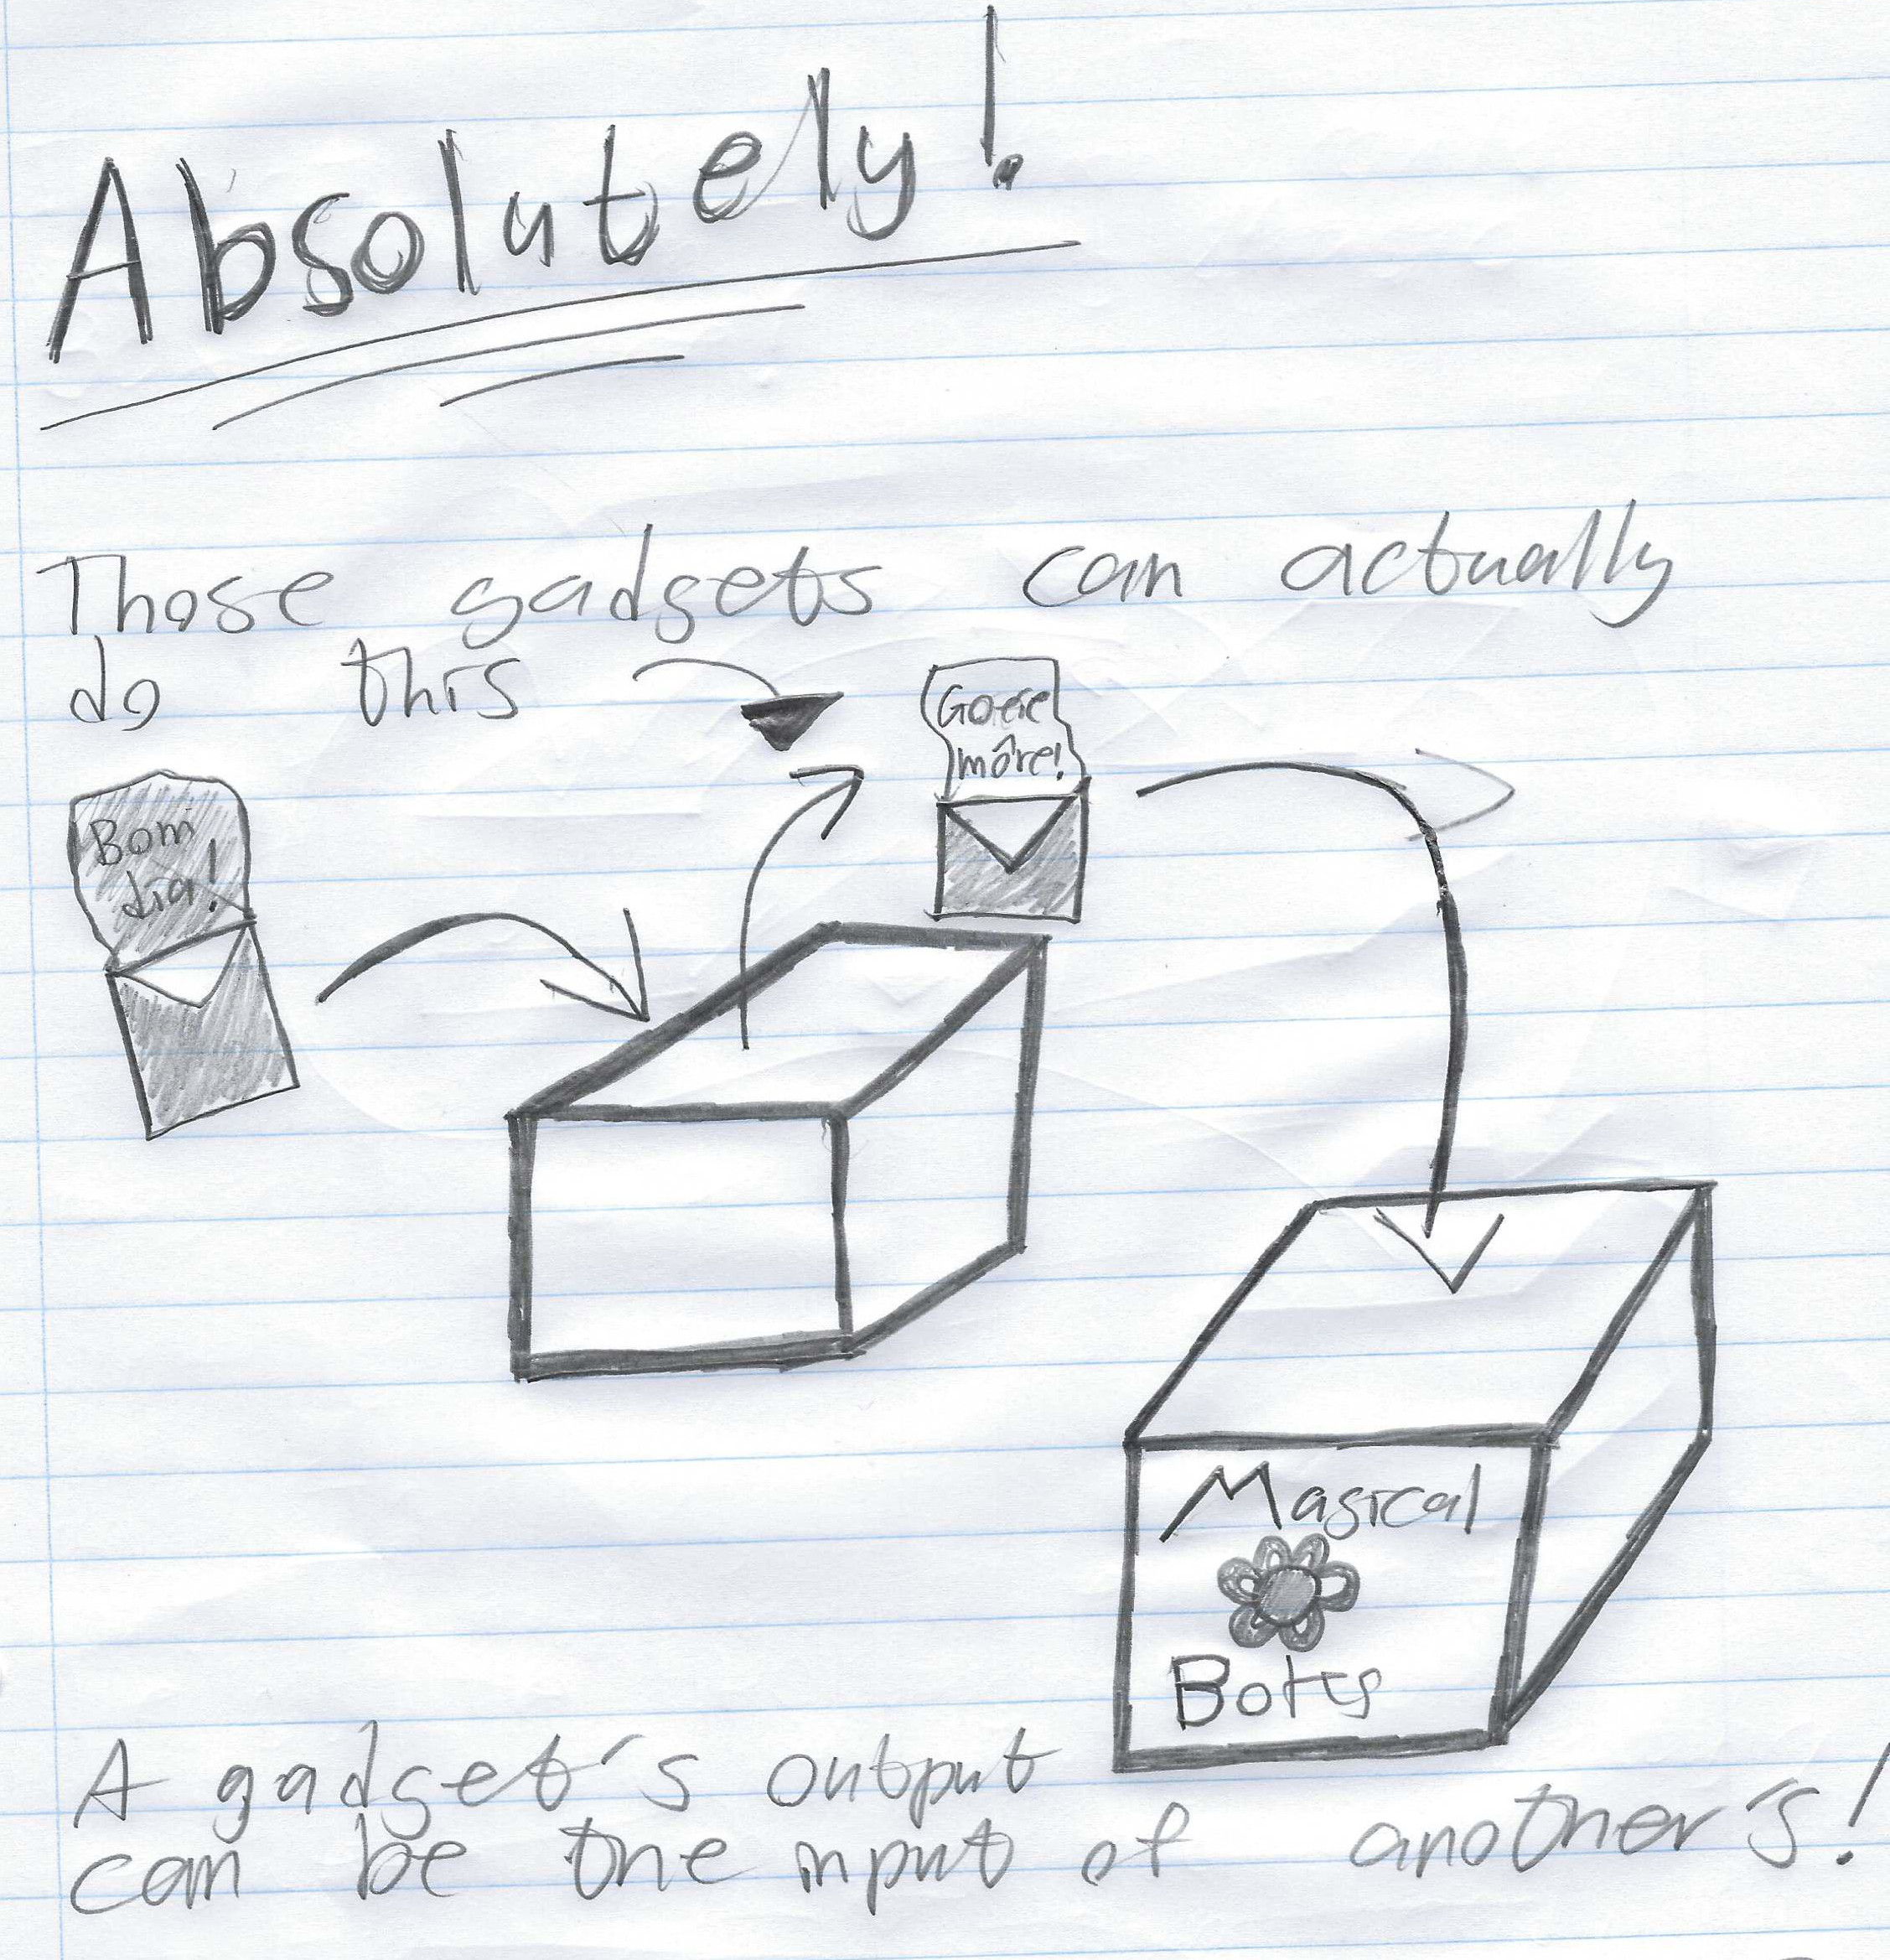 Absolutely!
Those gadgets can actually
do this
Goeie
môre!
Bom
dia!
Magical
Botts
A gadget's output
can be the input of another's!